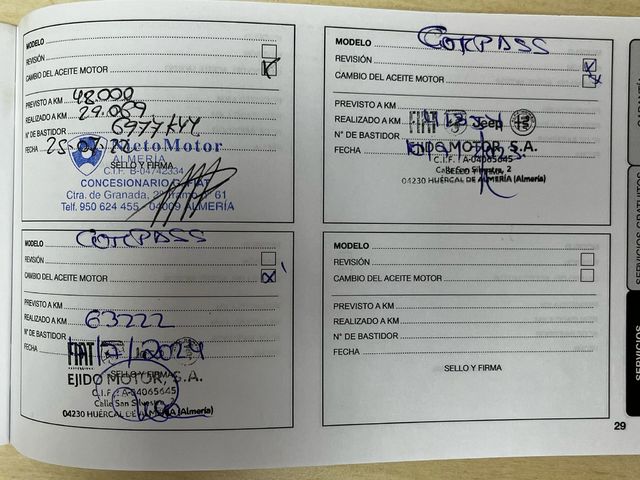 MODELO
REVISIÓN
CAMBIO DEL ACEITE MOTOR
PREVISTO A KM 48.000
REALIZADO A KM 29.069
N° DE BASTIDOR
FECHA
NietoMotor
ALMERÍA
C.I.F. B-04742334
SELLO Y FIRMA
CONCESIONARIO FIAT
Ctra. de Granada, 2º Tramo 61
Telf. 950 624 455 - 04009 ALMERÍA
MODELO COMPASS
REVISIÓN
CAMBIO DEL ACEITE MOTOR
PREVISTO A KM
REALIZADO A KM
N° DE BASTIDOR
FECHA
FIAT Jeep
EJIDO MOTOR, S.A.
C.I.F.: A-04065645
Calle San Silvestre, 2
SELLO Y FIRMA
04230 HUÉRCAL DE ALMERÍA (Almería)
MODELO COMPASS
REVISIÓN
CAMBIO DEL ACEITE MOTOR X
PREVISTO A KM
REALIZADO A KM 63222
N° DE BASTIDOR
FECHA /7/2024
FIAT
SELLO Y FIRMA
EJIDO MOTOR, S.A.
C.I.F.: A-04065645
Calle San Silvestre
04230 HUÉRCAL DE ALMERÍA (Almería)
MODELO
REVISIÓN
CAMBIO DEL ACEITE MOTOR
PREVISTO A KM
REALIZADO A KM
N° DE BASTIDOR
FECHA
SELLO Y FIRMA
29
SERVICIOS